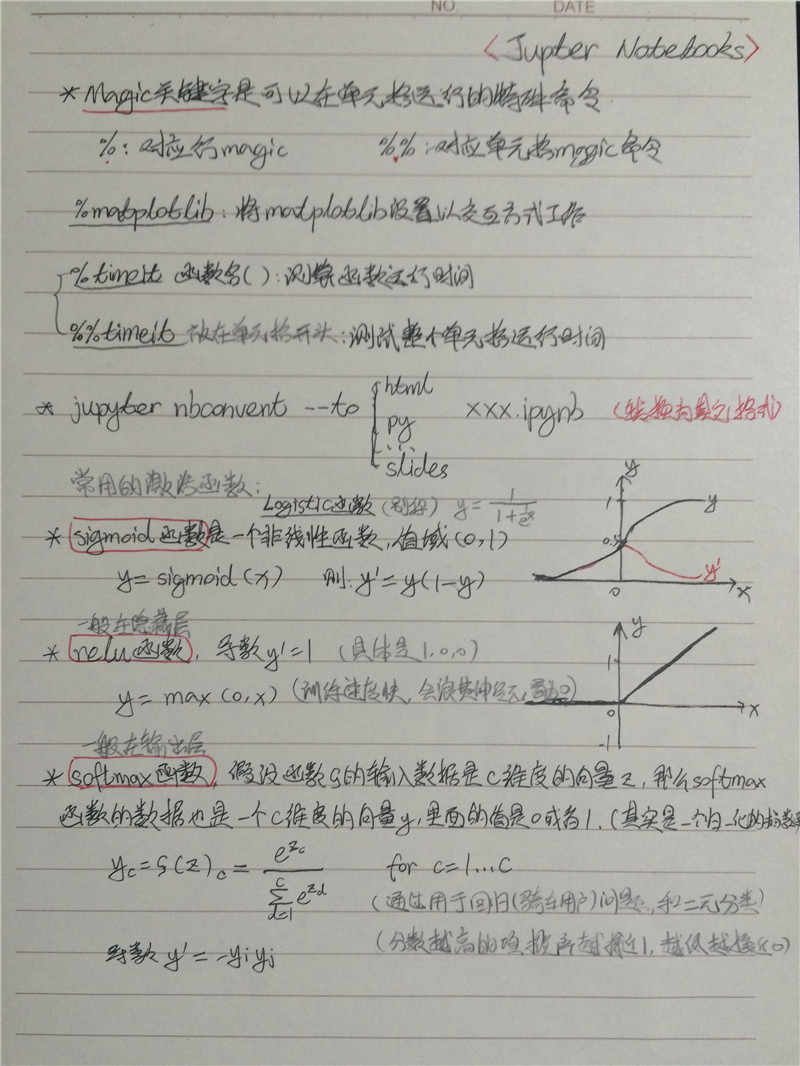 NO. DATE
<Jupter Notebooks>
* Magic关键字是可以在单元格运行的特殊命令.
%:对应行magic %%:对应单元格magic命令
%matplotlib:将matplotlib设置以交互方式工作
%timeit 函数名():测算函数运行时间
%%timeit 放在单元格开头:测试整个单元格运行时间
* jupyter nbconvent --to html py ... slides xxx.ipynb (转换为其它格式)
常用的激活函数:
Logistic函数(别称) y=1/(1+e^x)
* sigmoid函数是一个非线性函数,值域(0,1)
y=sigmoid(x) 则:y'=y(1-y)
y 1 0.5 0 y y' x
一般在隐藏层
* relu函数,导数y'=1 (具体是1,0,0)
y=max(0,x) (训练速度快,会浪费神经元,置为0)
y 1 0 -1 x
一般在输出层
* softmax函数,假设函数ς的输入数据是C维度的向量z,那么softmax
函数的数据也是一个C维度的向量y,里面的值是0或者1.(其实是一个归一化的指数
y_c=ς(z)_c=e^{z_c}/∑_{d=1}^{C}e^{z_d} for c=1...C
(通过用于回归(骑车用户)问题,和二元分类)
(分数越高的项 越接近1,越低越接近0)
导数y'=-yiyj